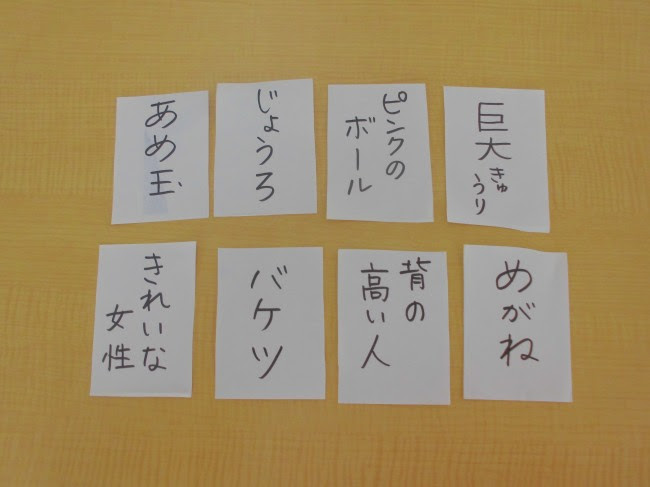 巨大
きゅうり
ピンクの
ボール
じょうろ
あめ玉
めがね
背の
高い人
バケツ
きれいな
女性